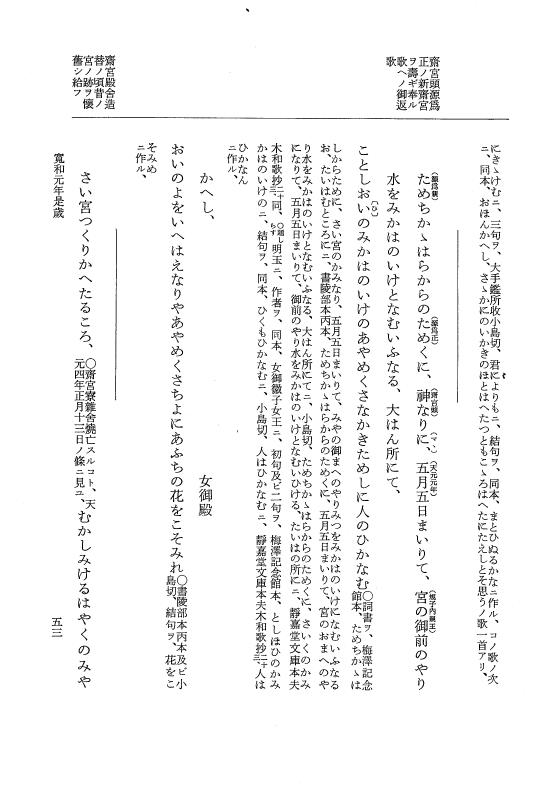 齋宮頭源爲
正ノ新齋宮
ヲ壽ギ奉ル
歌ヘノ御返
歌
齋宮殿舍造
替ノ頃昔ノ
宮ノ跡ヲ懷
舊シ給フ
にきゝけむニ、三句ヲ、大手鑑所收小島切、君によりもニ、結句ヲ、同本、まとひぬるかなニ作ル、コノ歌ノ次
ニ、同本、おほんかへし、さゝかにのいかきのほとはへたつともこゝろはへたにたえしとそ思うノ歌一首アリ、
ためちかゝはらからのためくに、神なりに、五月五日まいりて、宮の御前のやり
水をみかはのいけとなむいふなる、大はん所にて、
ことしおいのみかはのいけのあやめくさなかきためしに人のひかなむ
〇詞書ヲ、梅澤記念
館本、ためちかゝは
しからために、さい宮のかみなり、五月五日まいりて、みやの御まへのやりみつをみかはのいけになむいふなる
お、たいはむところにニ、書陵部本丙本、ためちかゝはらからのためくに、五月五日まいりて、宮のおまへのや
り水をみかはのいけとなむいふなる、大はん所にてニ、小島切、ためちかゝはらからのためくに、さいくのかみ
になりて、五月五日まいりて、御前のやり水をみかはのいけとなむいひける、たいはの所にニ、靜嘉堂文庫本夫
木和歌抄二十三同、〇題しらす明玉ニ、作者ヲ、同本、女御徽子女王ニ、初句及ビ二句ヲ、梅澤記念館本、としほひのかみ
かはのいけのニ、結句ヲ、同本、ひくもひかなむニ、小島切、人はひかなむニ、靜嘉堂文庫本夫木和歌抄二十三人は
ひかなん
ニ作ル、
かへし、
女御殿
おいのよをいへはえなりやあやめくさちよにあふちの花をこそみれ
〇書陵部本丙本及ビ小
島切、結句ヲ、花をこ
そみめ
ニ作ル、
さい宮つくりかへたるころ、
〇齋宮寮雜舍燒亡スルコト、天
元四年正月十三日ノ條ニ見ユ、
むかしみけるはやくのみや
寬和元年是歲
五三